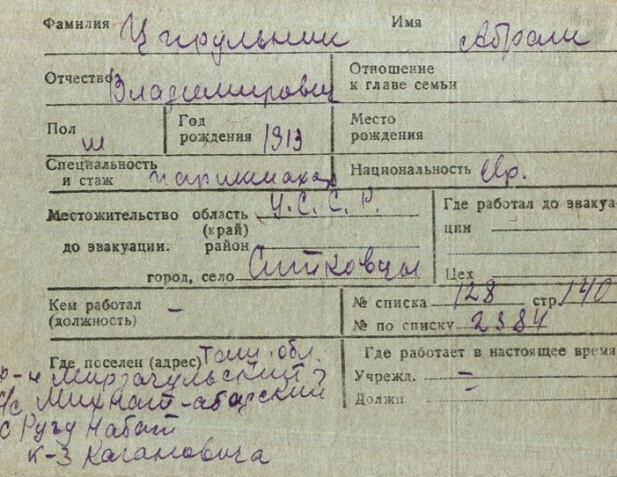 Фамилия Цирульник Имя Абрам
Отчество Владимирович Отношение
к главе семьи
Пол м Год
рождения 1913 Место
рождения
Специальность
и стаж парикмахер Национальность евр.
Местожительство область У.С.С.Р.
(край)
до эвакуации. район
город, село Ситковцы
Где работал до эвакуа-
ции
Цех
Кем работал
(должность) –
№ списка 128 стр. 140
№ по списку 2384
Где поселен (адрес) Таш. обл.
р-н Мирзачульский
с/с Михнат-абадский
с
к-з Кагановича
Где работает в настоящее время
Учрежд. –
Должн. –